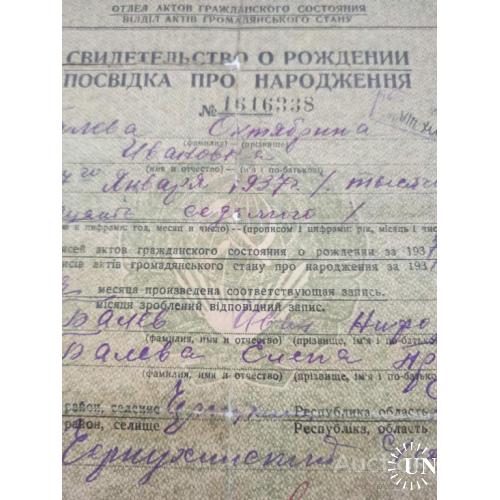 ОТДЕЛ АКТОВ ГРАЖДАНСКОГО СОСТОЯНИЯ
ВІДДІЛ АКТІВ ГРОМАДЯНСЬКОГО СТАНУ
СВИДЕТЕЛЬСТВО О РОЖДЕНИИ
ПОСВІДКА ПРО НАРОДЖЕННЯ
№ 1616338
Октябрина
(фамилия) — (прізвище)
Ивановна
(имя и отчество) — (ім'я і по-батькові)
Января 1937 г. ( тысяч
седьмого )
и цифрами: год, месяц и число) — (прописом і цифрами: рік, місяць і чис
исей актов гражданского состояния о рождении за 193
писів актів громадянського стану про народження за 193
месяца произведена соответствующая запись.
місяця зроблений відповідний запис.
Балев Иван
(фамилия, имя и отчество) (прізвище, ім'я і по-батько
Балева Елена
(фамилия, имя и отчество) (прізвище, ім'я і по-батько
район, селение Республика, область
район, селище Республіка, область
Чернухинский
UN